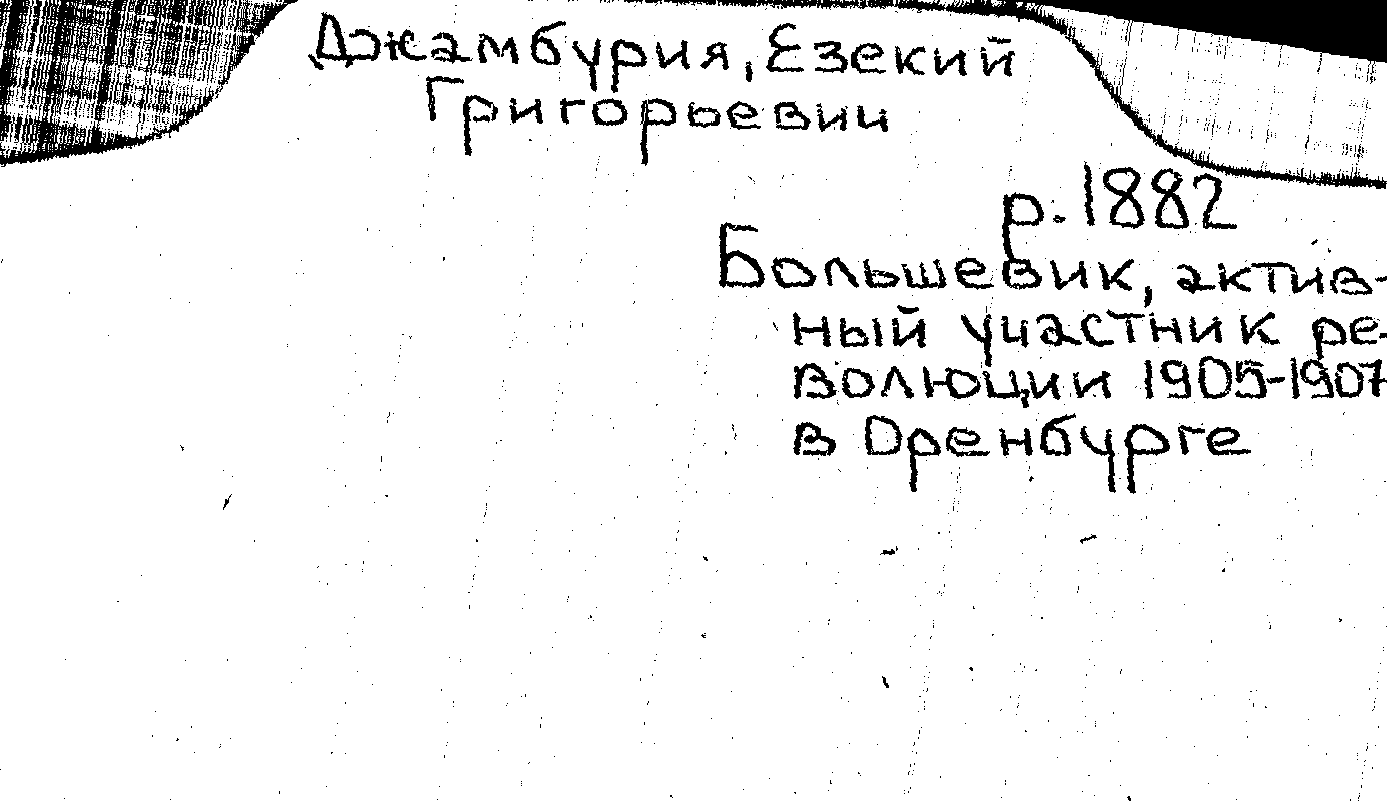 Джамбурия, Езекий
Григорьевич
р. 1882
Большевик, актив-
ный участник ре-
волюции 1905-1907
в Оренбурге